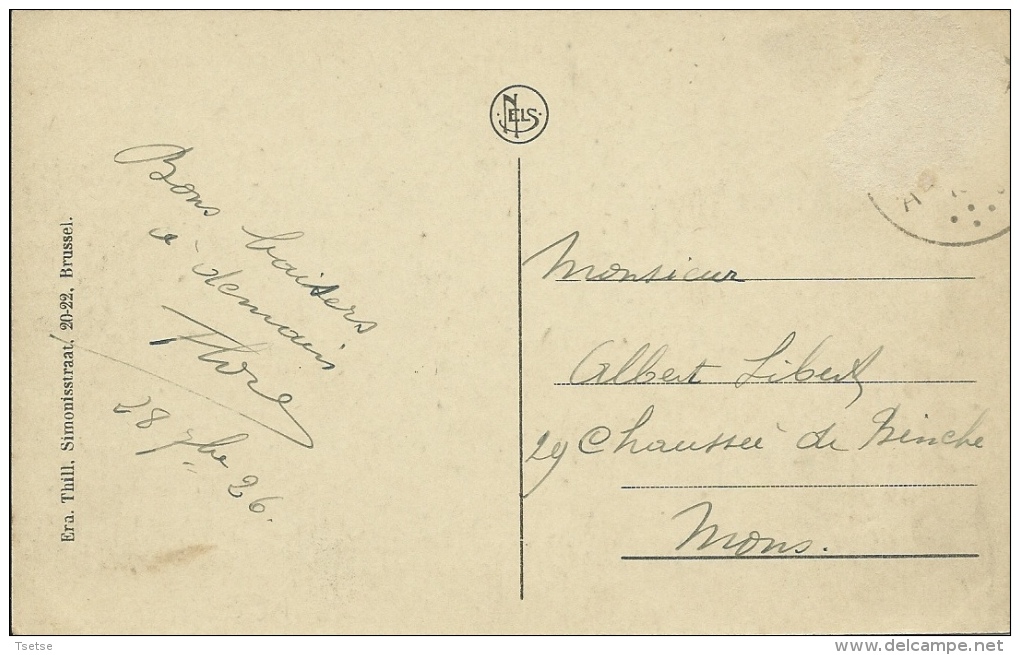 NELS
Bons baisers
à demain
Flore
28 7bre 26.
Ern. Thill, Simonisstraat, 20-22, Brussel.
Monsieur
Albert Libert
29 Chaussée de Binche
Mons.
Tsetse
www.delcampe.net